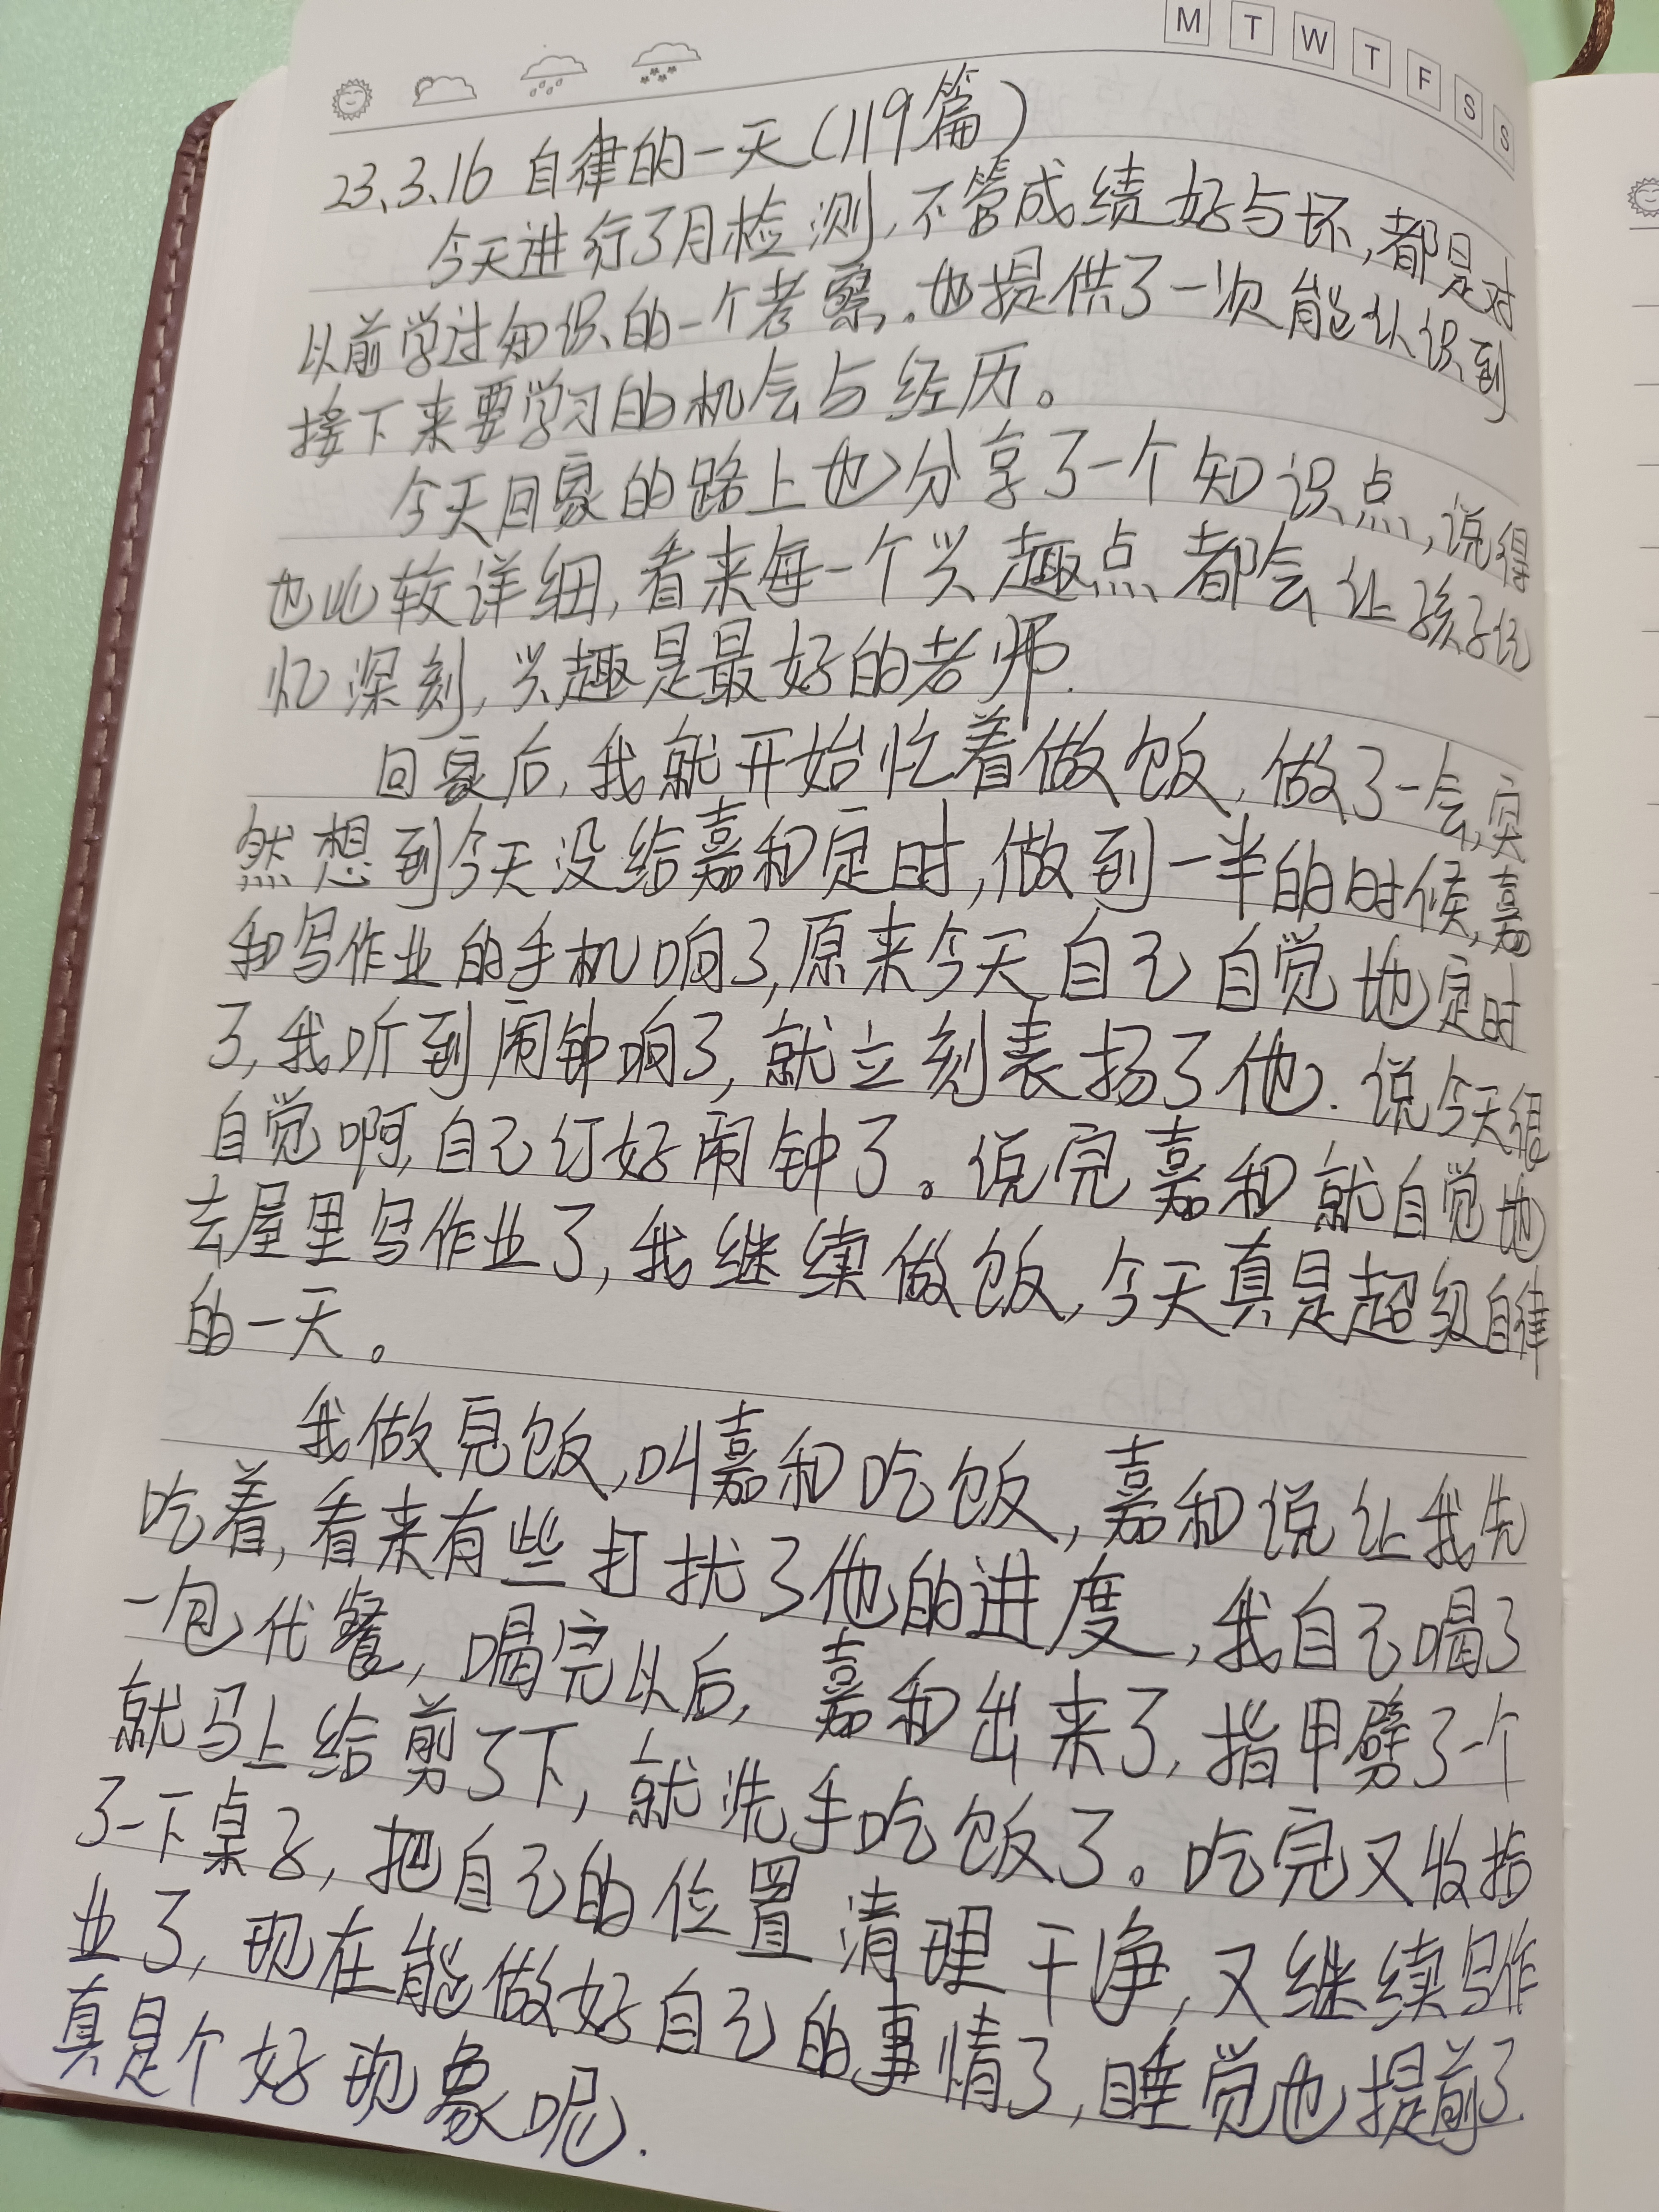 M T W T F S S
23、3、16 自律的一天(119篇)
今天进行了月检测,不管成绩好与坏,都是对
以前学过知识的一个考察,。也提供了一次能认识到
接下来要学习的机会与经历。
今天回家的路上也分享了一个知识点,说得
也比较详细,看来每一个兴趣点都会让孩子记
忆深刻,兴趣是最好的老师.
回家后,我就开始忙着做饭,做了一会,突
然想到今天没给嘉和定时,做到一半的时候,嘉
和写作业的手机响了,原来今天自己自觉地定时
了,我听到闹钟响了,就立刻表扬了他.说今天很
自觉啊,自己订好闹钟了。说完嘉和就自觉地
去屋里写作业了,我继续做饭,今天真是超级自律
的一天。
我做完饭,叫嘉和吃饭,嘉和说让我先
吃着,看来有些打扰了他的进度,我自己喝了
一包代餐,喝完以后,嘉和出来了,指甲劈了一个
就马上给剪了下,就洗手吃饭了。吃完又收拾
了一下桌子,把自己的位置清理干净,又继续写作
业了,现在能做好自己的事情了,睡觉也提前了.
真是个好现象呢.